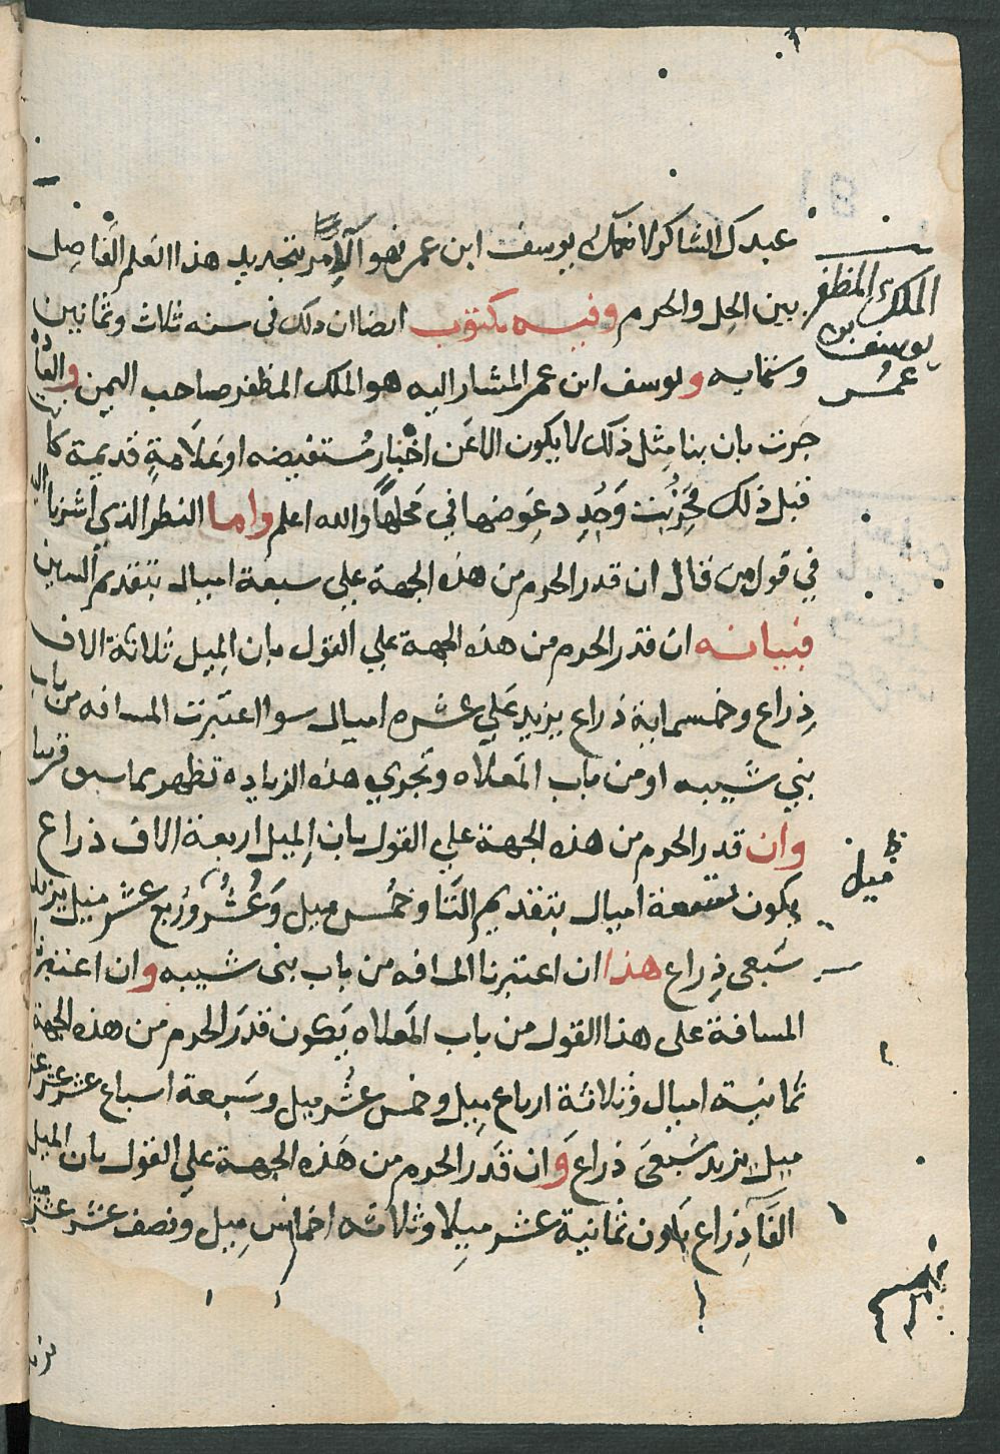 عبدك الشاكر لانعمك يوسف ابن عمر فهو الامر بتجديد هذا العلم الفاصل
بين الحل والحرم وفيه مكتوب ايضا ان ذلك فى سنه ثلاث وثمانين
وستمايه ويوسف ابن عمر المشار اليه هو الملك المظفر صاحب اليمن والعادة
جرت بان بنا مثل ذلك لا يكون الا عن اخبار مستفيضه او علامة قديمة كا
قبل ذلك فخربت وجدد عوضها في محلها والله اعلم واما النظر الذي اشرنا اليه
في قول من قال ان قدر الحرم من هذه الجهة علي سبعة اميال بتقديم السين
فبيانه ان قدر الحرم من هذه الجهة علي القول بان الميل ثلاثة الاف
ذراع وخمسماية ذراع يزيد علي عشره اميال سوا اعتبرت المسافه من باب
بني شيبه او من باب المعلاه وتجري هذه الزياده تظهر مما سبق قريبا
وان قدر الحرم من هذه الجهة علي القول بان الميل اربعة الاف ذراع
يكون تسعة اميال بتقديم التا وخمس ميل وعشر وربع عشر ميل يزيد
سبعى ذراع هذا ان اعتبرنا المسافه من باب بنى شيبه وان اعتبرنا
المسافة على هذا القول من باب المعلاه يكون قدر الحرم من هذه الجهة
ثمانية اميال وثلاثة ارباع ميل وخمس عشر ميل وسبعة اسباع عشر عشر
ميل يزيد سبعى ذراع وان قدر الحرم من هذه الجهة علي القول بان الميل
الفا ذراع يكون ثمانية عشر ميلا وثلاثه اخماس ميل ونصف عشر عشر ميل
الملك المظفر
يوسف بن
عمر
ميل